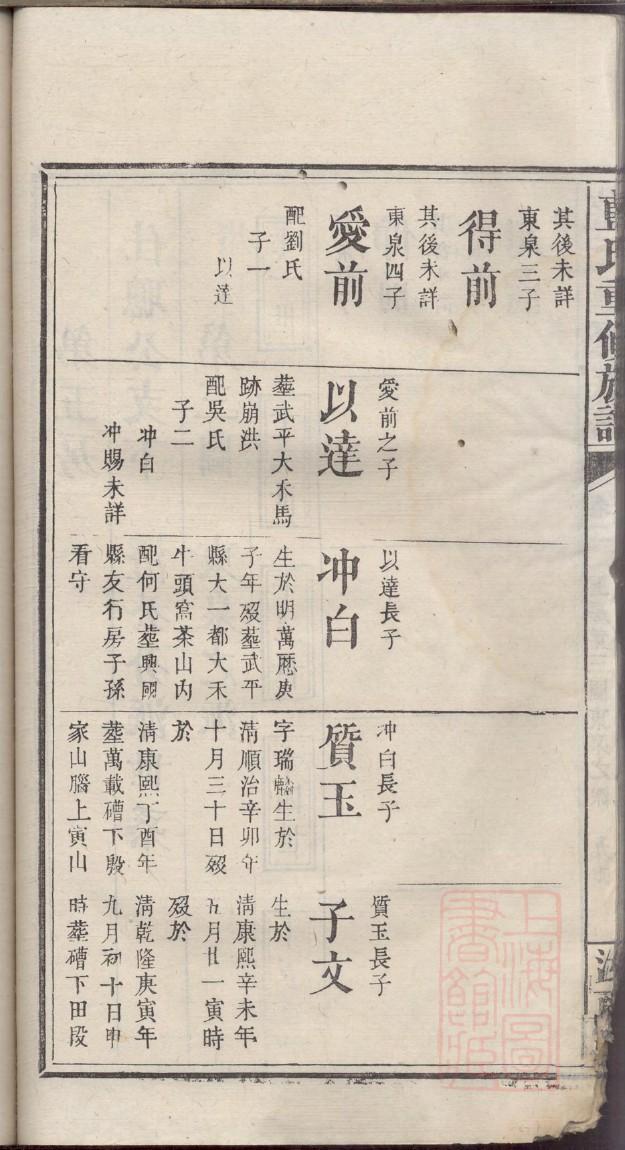 其後未詳
東泉三子
得前
其後未詳
東泉四子
愛前
配劉氏
子一
以達
愛前之子
以達
塟武平大禾馬
跡崩洪
配吳氏
子二
冲白
冲賜未詳
以達長子
冲白
生於明萬厯庚
子年殁塟武平
縣大一都大禾
牛頭窩茶山内
配何氏塟興國
縣友行房子孫
看守
冲白長子
質玉
字瑞麟生於
清順治辛卯年
十月三十日殁
於
清康熙丁酉年
塟萬載磆下殷
家山腦上寅山
質玉長子
子文
生於
清康熙辛未年
五月廿一寅時
殁於
清乾隆庚寅年
九月初十日申
時塟磆下田段
氏重修族譜
上海圖書館藏